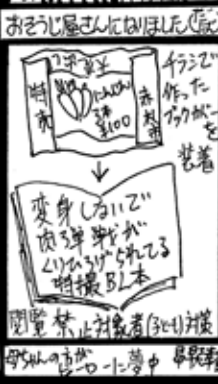 おそうじ屋さんになりました
特売
にんじん
3本
¥100
チラシで
作った
ブックカバー
を
装着
変身しないで
肉弾戦が
くりひろげられてる
特撮BL本
閲覧禁止対象者(子ども)対策
母ちゃんの方が
ヒーローに夢中